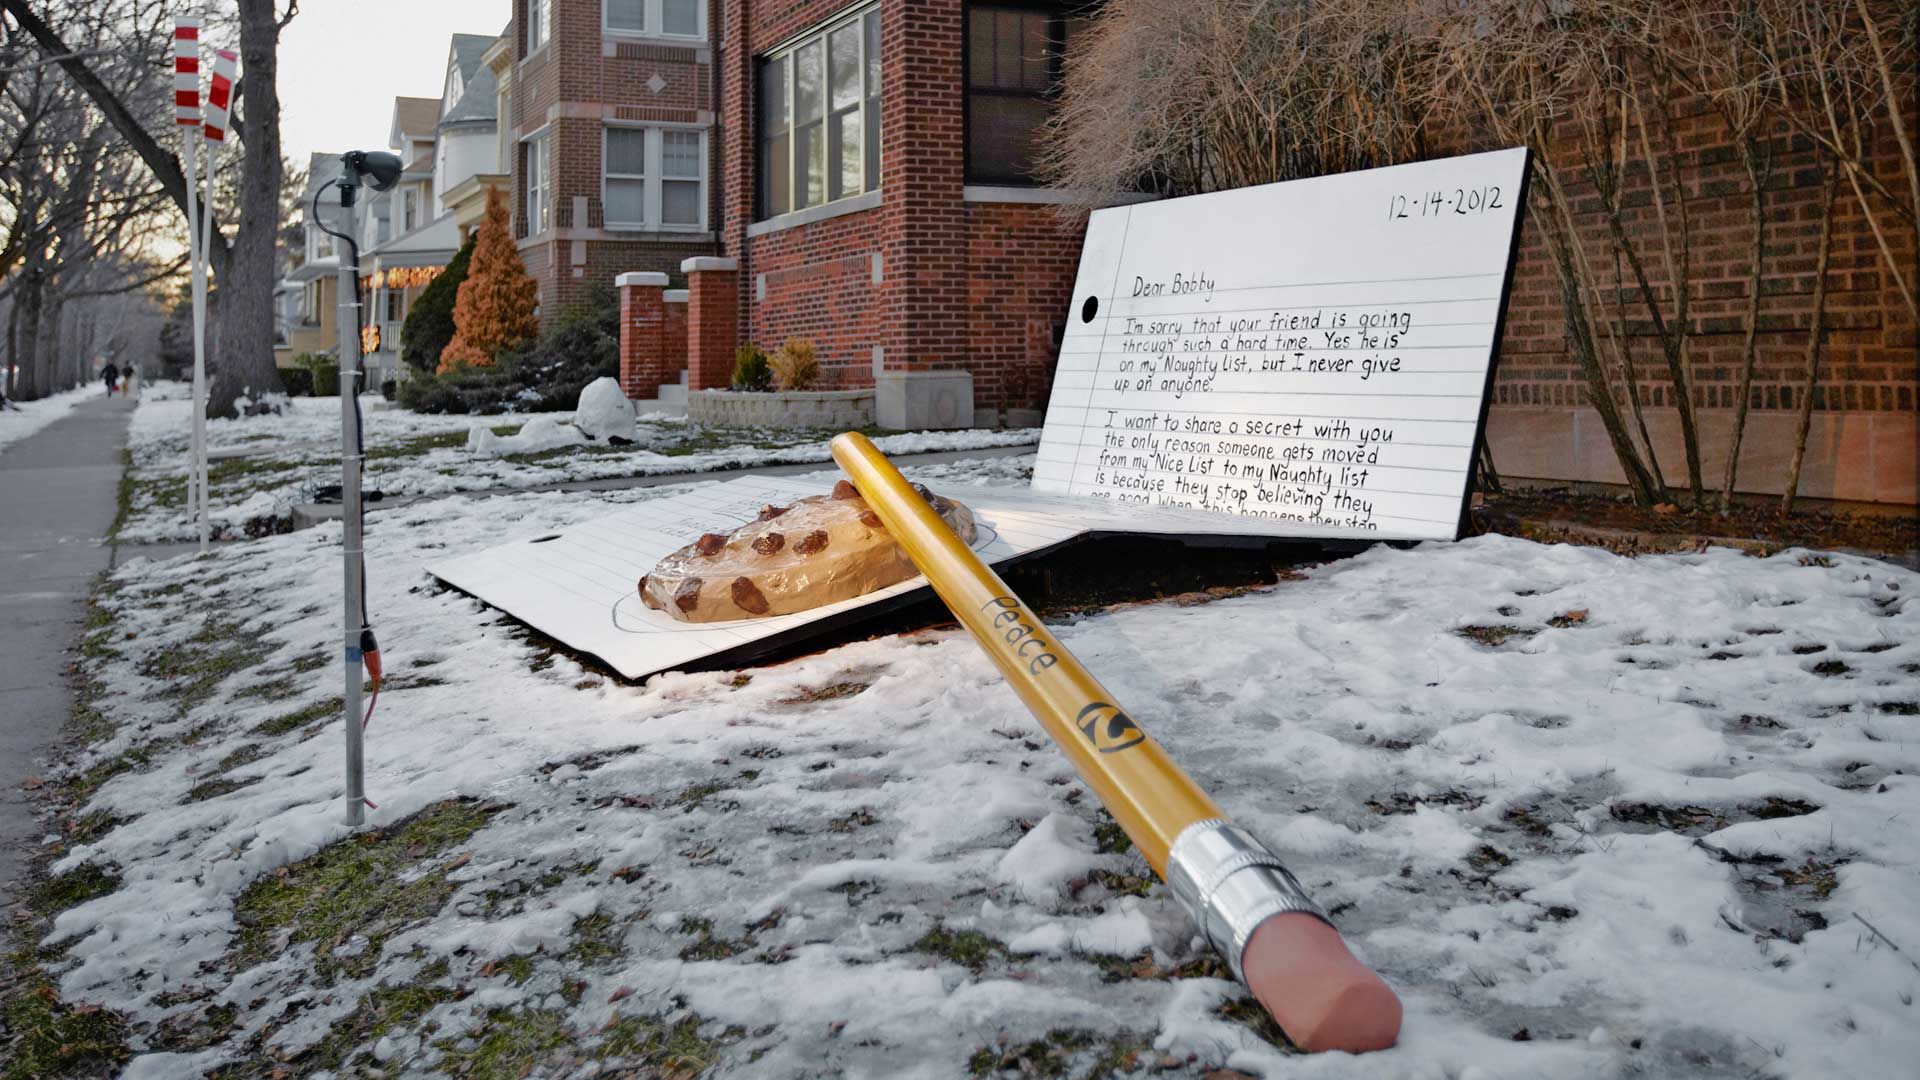 12-14-2012
Dear Bobby
I'm sorry that your friend is going
through such a hard time. Yes he is
on my Naughty List, but I never give
up on anyone.
I want to share a secret with you
the only reason someone gets moved
from my Nice List to my Naughty list
is because they stop believing they
are good When this happens they stop
Peace